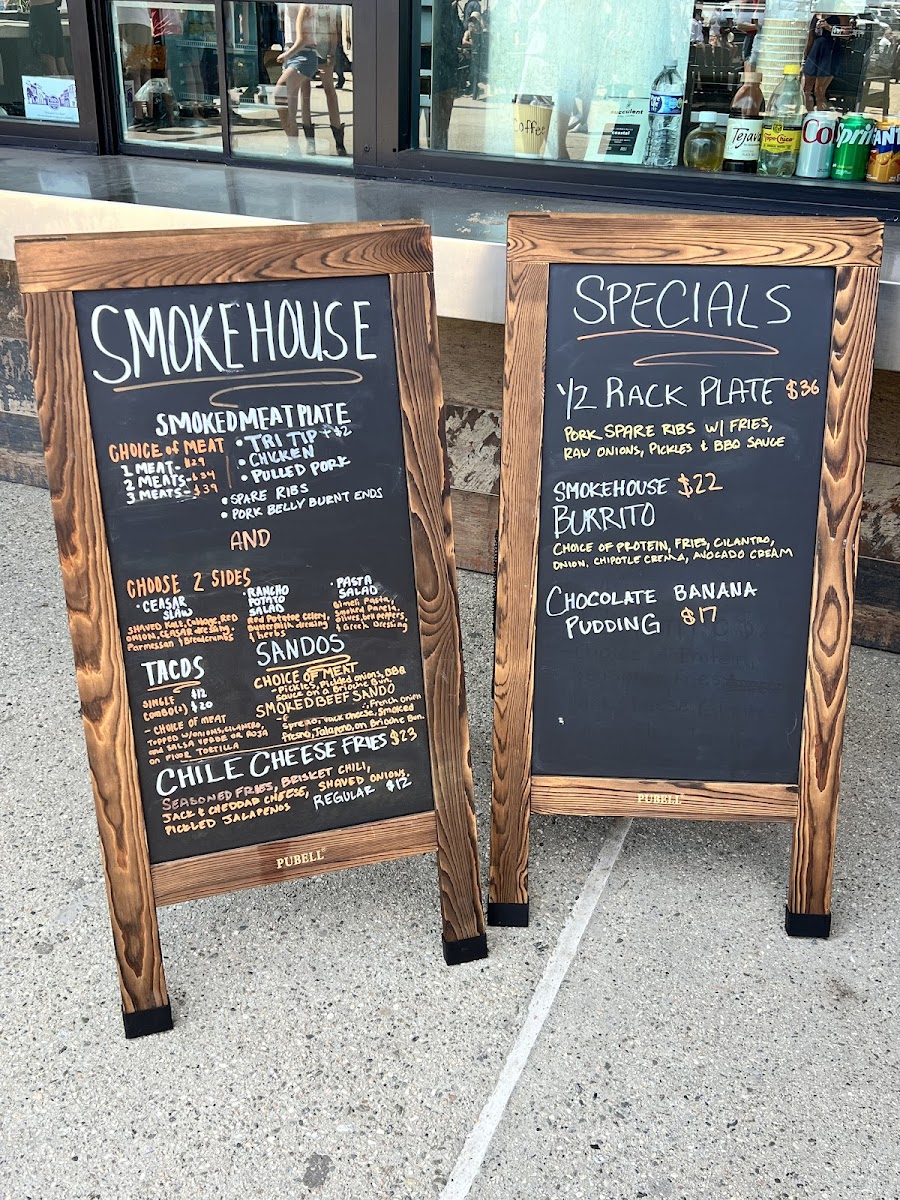 Coffee
succulent
Tejava
Topo Chico
Co
Sprite
ANT
SMOKEHOUSE
SMOKED MEAT PLATE
CHOICE of MEAT
1 MEAT- $29
2 MEATS-$34
3 MEATS-$39
• TRI TIP +$2
• CHICKEN
• PULLED PORK
• SPARE RIBS
• PORK BELLY BURNT ENDS
AND
CHOOSE 2 SIDES
• CEASAR SLAW
SHAVED KALE, Cabbage, RED
ONION, CEASAR dressing,
Parmessan & Breadcrumbs
• RANCHO
POTATO
SALAD
Red Potatoe Celery,
buttermilk dressing
& herbs
• PASTA
SALAD
Gimeli Pasta,
Smoked Panela,
olives, bell peppers,
& Greek Dressing
TACOS
SINGLE $12
COMBO(2) $20
- CHOICE OF MEAT
TOPPED W/ONIONS, CILANTRO,
and SALSA VERDE OR ROJA
on FLOUR TORTILLA
SANDOS
CHOICE OF MEAT
-Pickles, Pickled onions, BBQ
sauce on a Brioche Bun.
SMOKED BEEF SANDO
French onion
Spread, Jack cheese, Smoked
fresno, Jalapeno, on Brioche Bun.
CHILE CHEESE FRIES $23
SEASONED FRIES, BRISKET CHILI,
JACK & CHEDDAR CHEESE, SHAVED ONIONS,
PICKLED JALAPENOS
REGULAR $12
PUBELL
SPECIALS
1/2 RACK PLATE $36
PORK SPARE RIBS W/ FRIES,
RAW ONIONS, PICKLES & BBQ SAUCE
SMOKEHOUSE $22
BURRITO
CHOICE OF PROTEIN, FRIES, CILANTRO,
ONION, CHIPOTLE CREMA, AVOCADO CREAM
CHOCOLATE BANANA
PUDDING $17
PUBELL